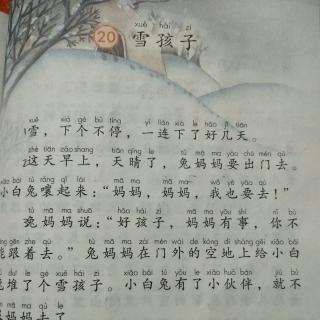 xuě hái zi
20 雪孩子
xuě xià gè bù tíng yì lián xià le hǎo jǐ tiān
雪，下个不停，一连下了好几天。
zhè tiān zǎo shang tiān qíng le tù mā ma yào chū mén qù
这天早上，天晴了，兔妈妈要出门去。
xiǎo bái tù rǎng qǐ lái mā ma mā ma wǒ yě yào qù
小白兔嚷起来：“妈妈，妈妈，我也要去！”
tù mā ma shuō hǎo hái zi mā ma yǒu shì nǐ bù
兔妈妈说：“好孩子，妈妈有事，你不
néng gēn zhe qù tù mā ma zài mén wài de kòng dì shàng gěi xiǎo bái
能跟着去。”兔妈妈在门外的空地上给小白
tù duī le gè xuě hái zi xiǎo bái tù yǒu le xiǎo huǒ bàn jiù bù
兔堆了个雪孩子。小白兔有了小伙伴，就不
mā ma qù le
妈妈去了